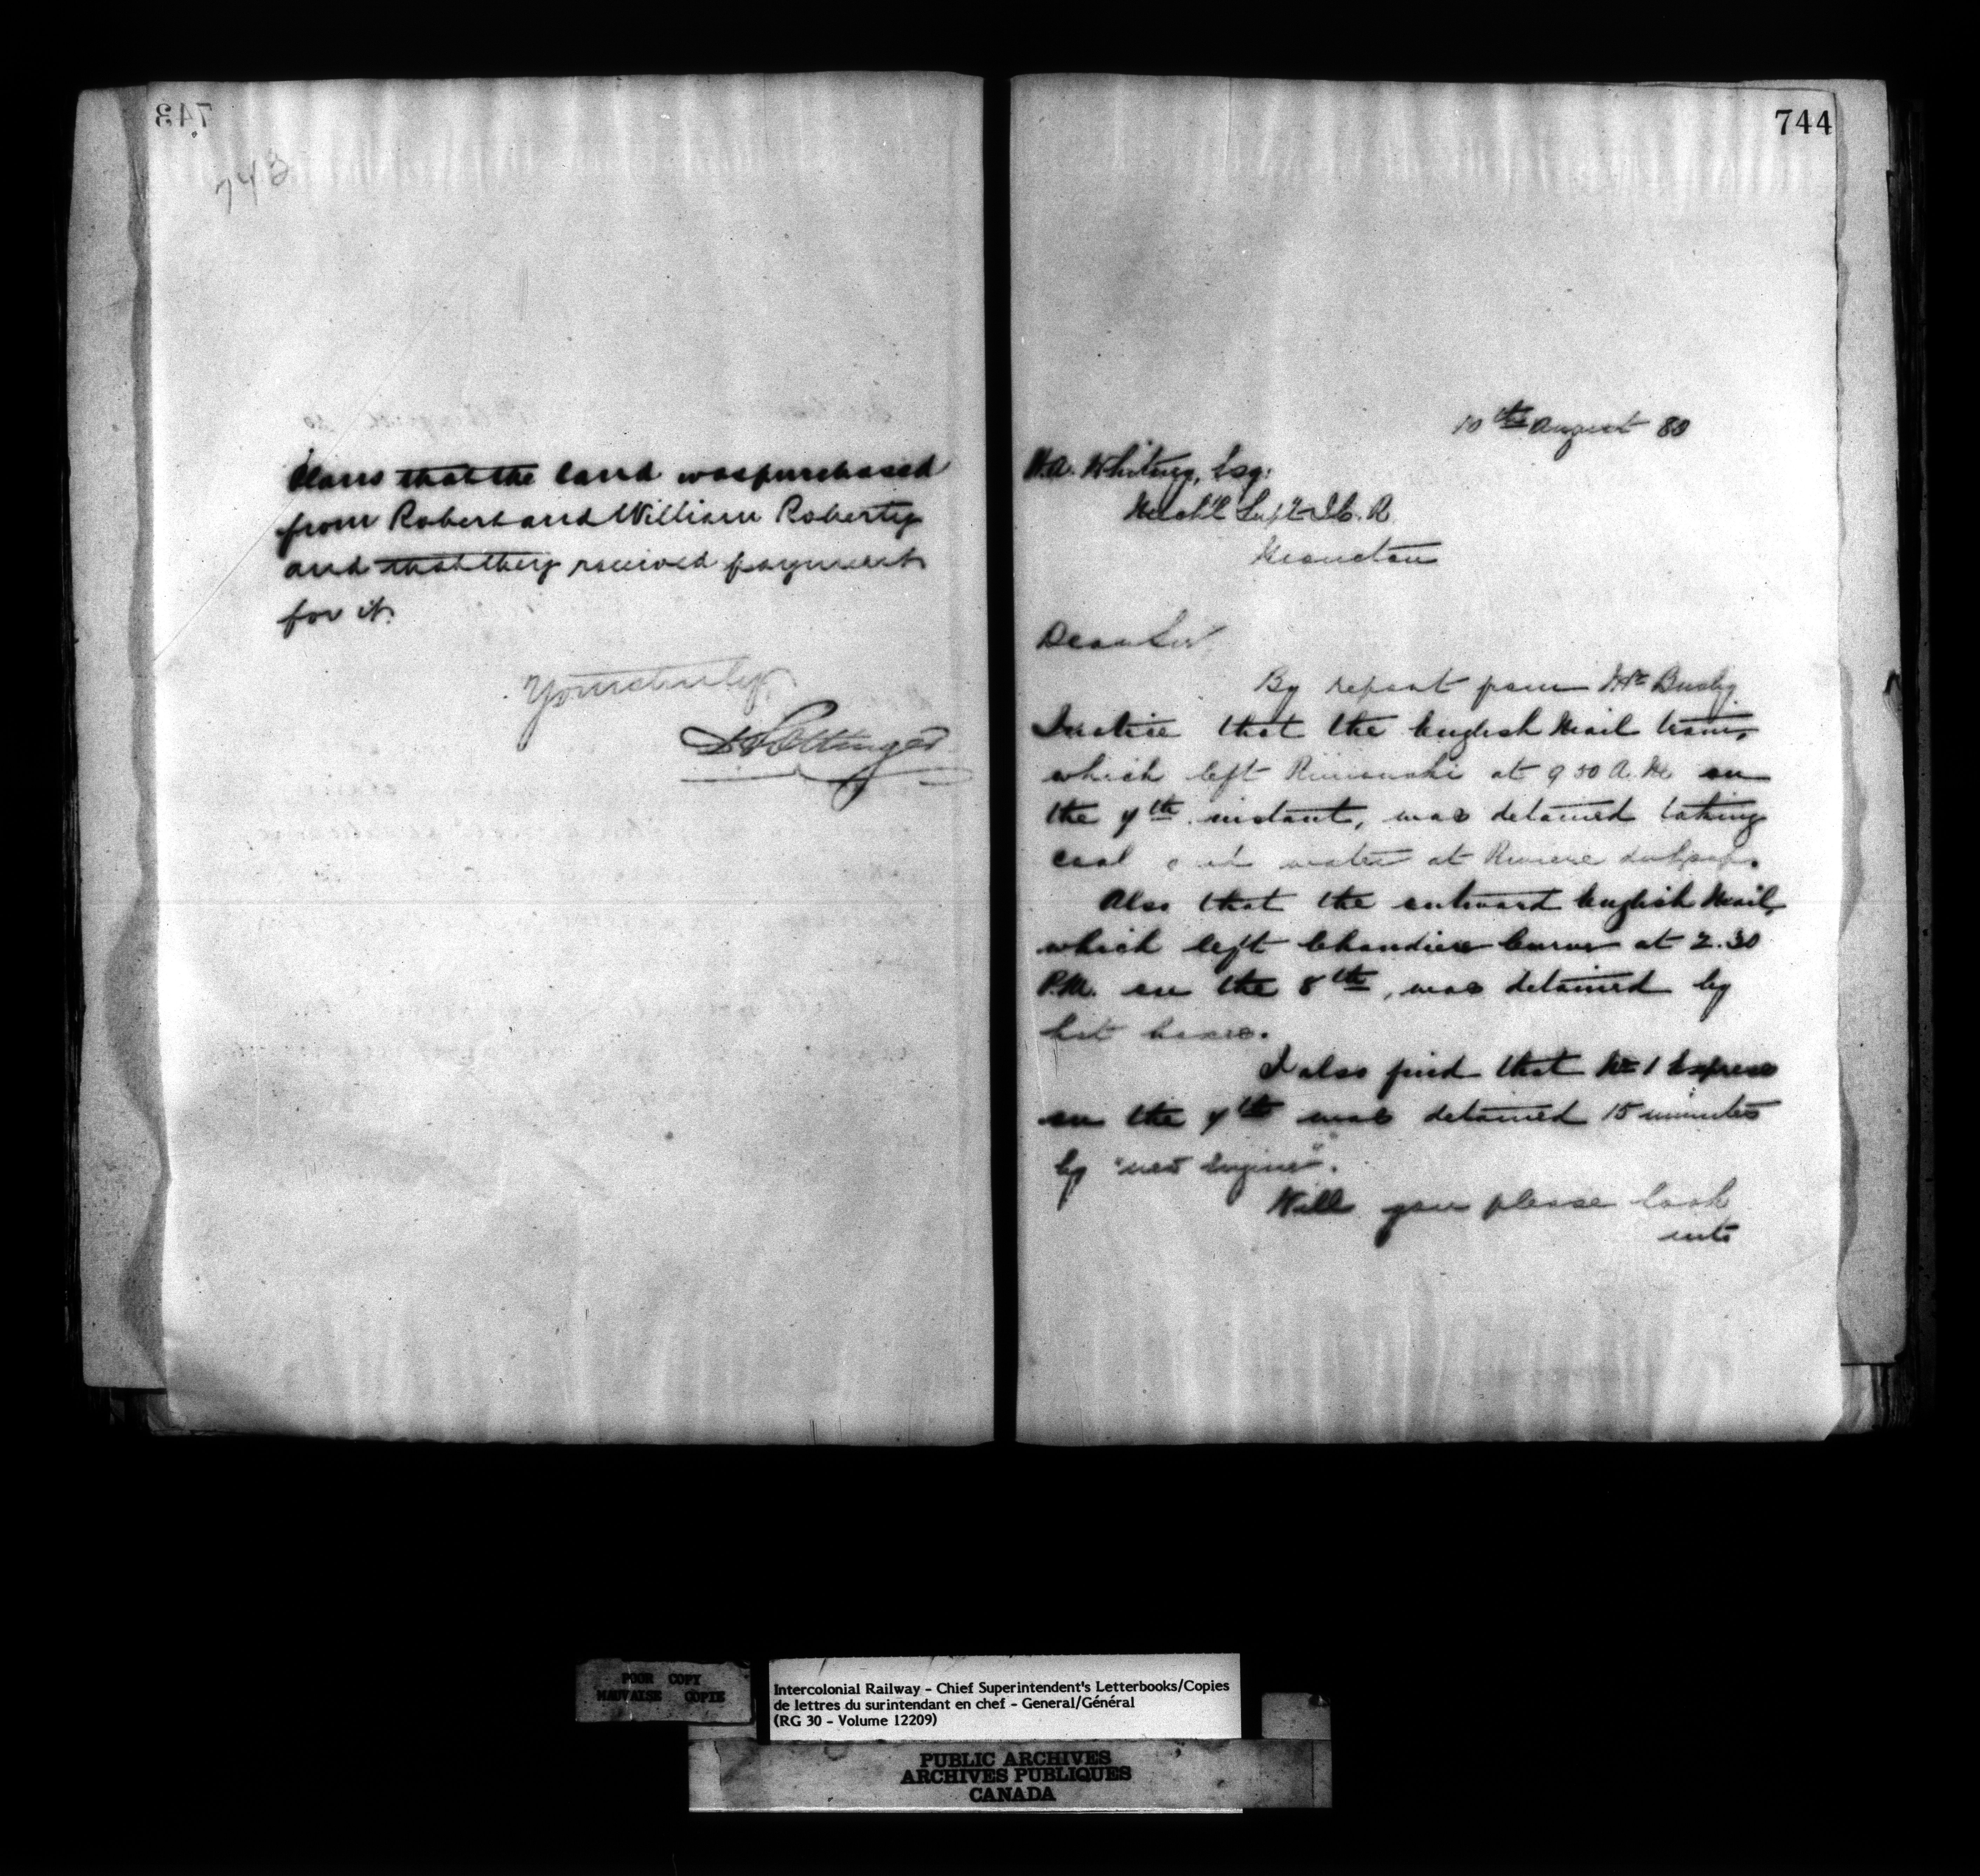 743
743
Claus that the land was purchased
from Robert and William Roberty
and that they received payment
for it.
Yours truly
D Pottinger
744
10th August 80
H.A. Whitney, Esq.
Mech'l Sup't I.C.R.
Moncton
Dear Sir
By report from Mr Busby
I notice that the English Mail train,
which left Rimouski at 9 50 A.M. on
the 7th instant, was detained taking
coal and water at Riviere du Loup.
Also that the outward English Mail,
which left Chaudiere Curve at 2.30
P.M. on the 8th, was detained by
hot boxes.
I also find that No 1 Express
on the 7th was detained 15 minutes
by "new Engine".
Will you please look
into
POOR COPY
MAUVAISE COPIE
Intercolonial Railway - Chief Superintendent's Letterbooks/Copies
de lettres du surintendant en chef - General/Général
(RG 30 - Volume 12209)
PUBLIC ARCHIVES
ARCHIVES PUBLIQUES
CANADA